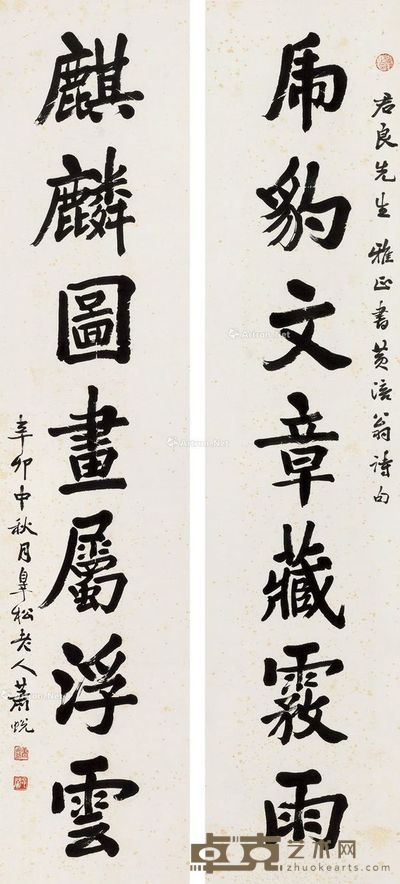 君良先生雅正書黃涪翁詩句
虎豹文章藏霧雨
麒麟圖畫屬浮雲
辛卯中秋月皐松老人蕭蛻
卓克艺术网
www.zhuokearts.com